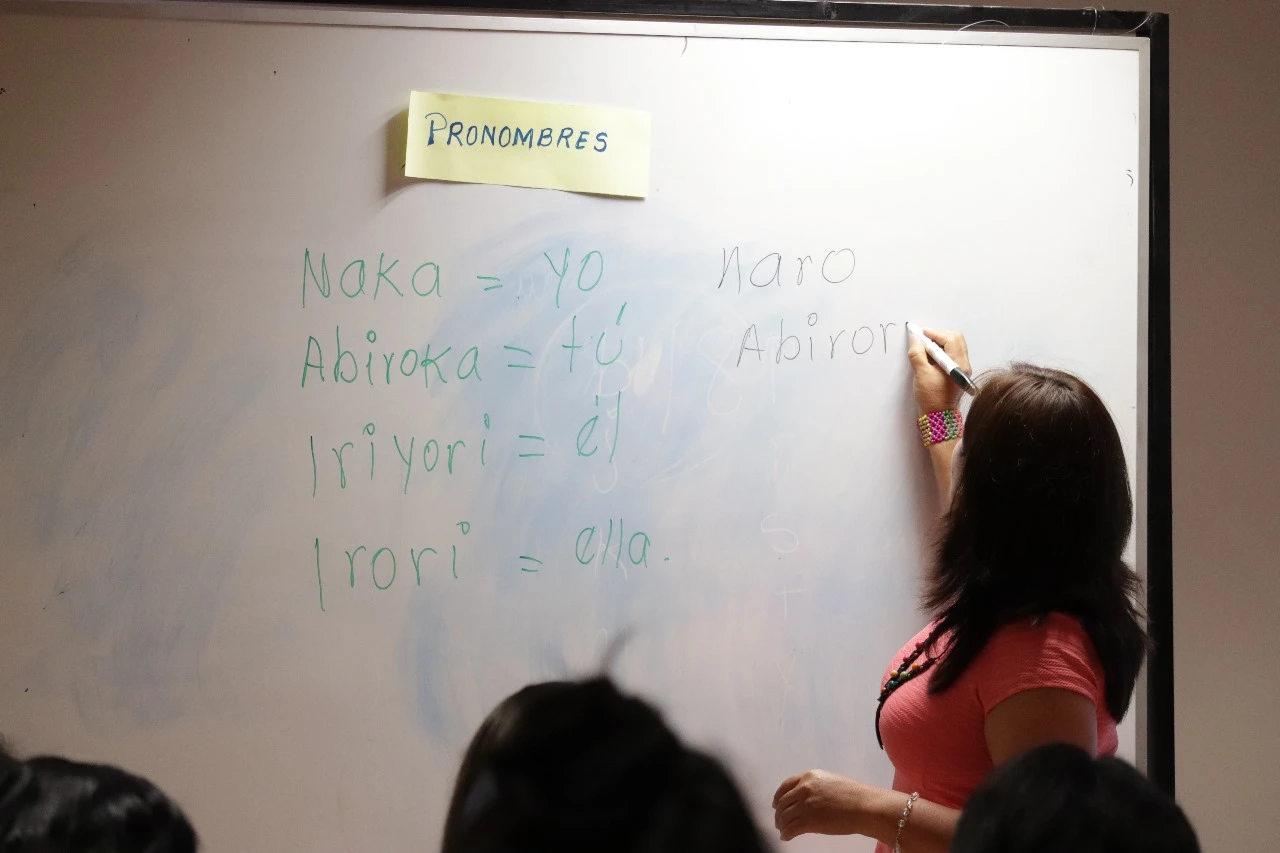 PRONOMBRES
Naka = yo naro
Abiroka = tú Abiror
Iriyori = él
Irori = ella.